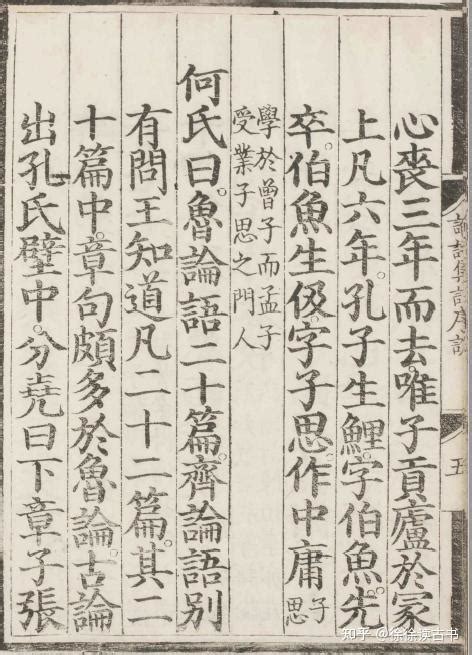 論語集註序說
五
心喪三年而去。唯子貢廬於冢
上凡六年。孔子生鯉。字伯魚。先
卒。伯魚生伋。字子思。作中庸子思
學於曾子而孟子
受業子思之門人
何氏曰。魯論語二十篇。齊論語別
有問王知道凡二十二篇。其二
十篇中。章句頗多於魯論。古論
出孔氏壁中。分堯曰下章子張
知乎 @徐徐读古书